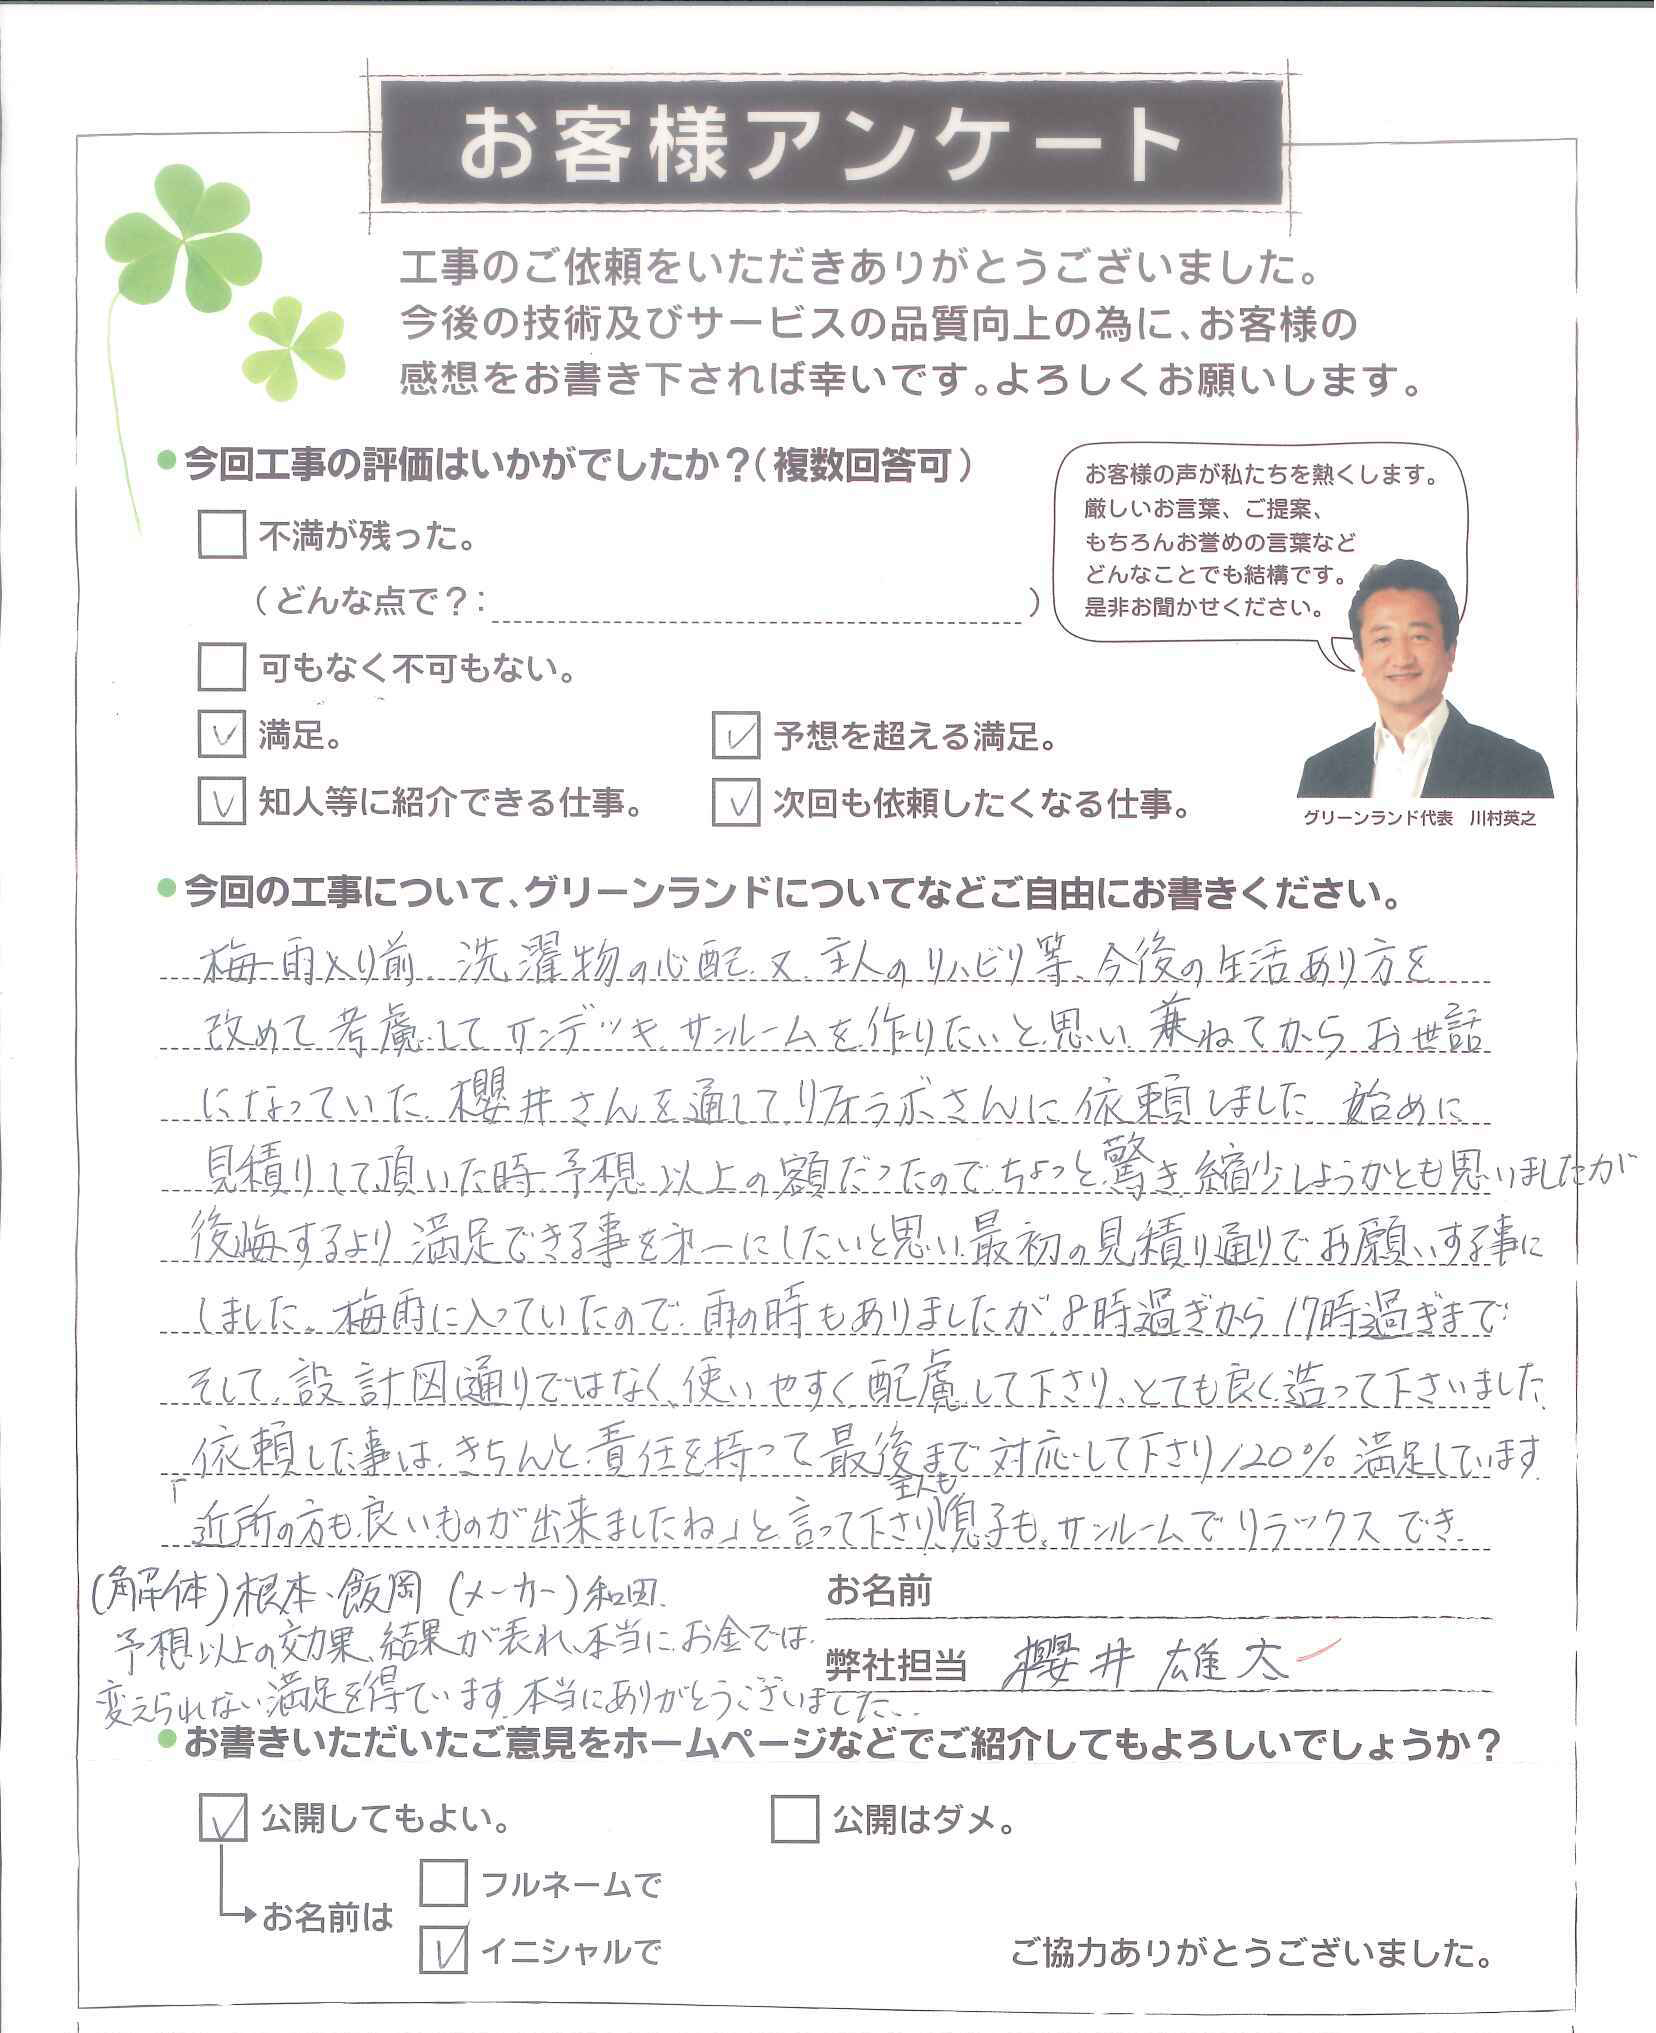 お客様アンケート
工事のご依頼をいただきありがとうございました。
今後の技術及びサービスの品質向上の為に、お客様の
感想をお書き下されば幸いです。よろしくお願いします。
今回工事の評価はいかがでしたか？（複数回答可）
不満が残った。
（どんな点で？：　）
可もなく不可もない。
満足。
予想を超える満足。
知人等に紹介できる仕事。
次回も依頼したくなる仕事。
お客様の声が私たちを熱くします。
厳しいお言葉、ご提案、
もちろんお誉めの言葉など
どんなことでも結構です。
是非お聞かせください。
グリーンランド代表　川村英之
今回の工事について、グリーンランドについてなどご自由にお書きください。
梅雨入り前、洗濯物の心配、又、主人のリハビリ等、今後の生活あり方を
改めて考慮して サンデッキ、サンルームを作りたいと思い、兼ねてから お世話
になっていた、櫻井さんを通して、リフォラボさんに 依頼しました 始めに
見積りして頂いた時 予想 以上の額だったので、ちょっと驚き 縮少しようかとも思いましたが
後悔するより 満足できる事を才一にしたいと思い、最初の見積り通りでお願いする事に
しました。梅雨に入っていたので、雨の時もありましたが、8時過ぎから 17時過ぎまで
そして、設計図通りではなく、使いやすく 配慮して下さり、とても良く造って下さいました
依頼した事は、きちんと責任を持って 最後まで 対応して下さり 120% 満足しています
「近所の方も、良いものが出来ましたね」と言って下さり、主人も 息子も、サンルームで リラックス でき、
（解体）根本、飯岡（メーカー）和田
予想以上の効果、結果が表れ、本当に お金では
変えられない 満足を得ています。本当にありがとうございました
お名前
弊社担当 櫻井 雄太
お書きいただいたご意見をホームページなどでご紹介してもよろしいでしょうか？
公開してもよい。
公開はダメ。
お名前は
フルネームで
イニシャルで
ご協力ありがとうございました。